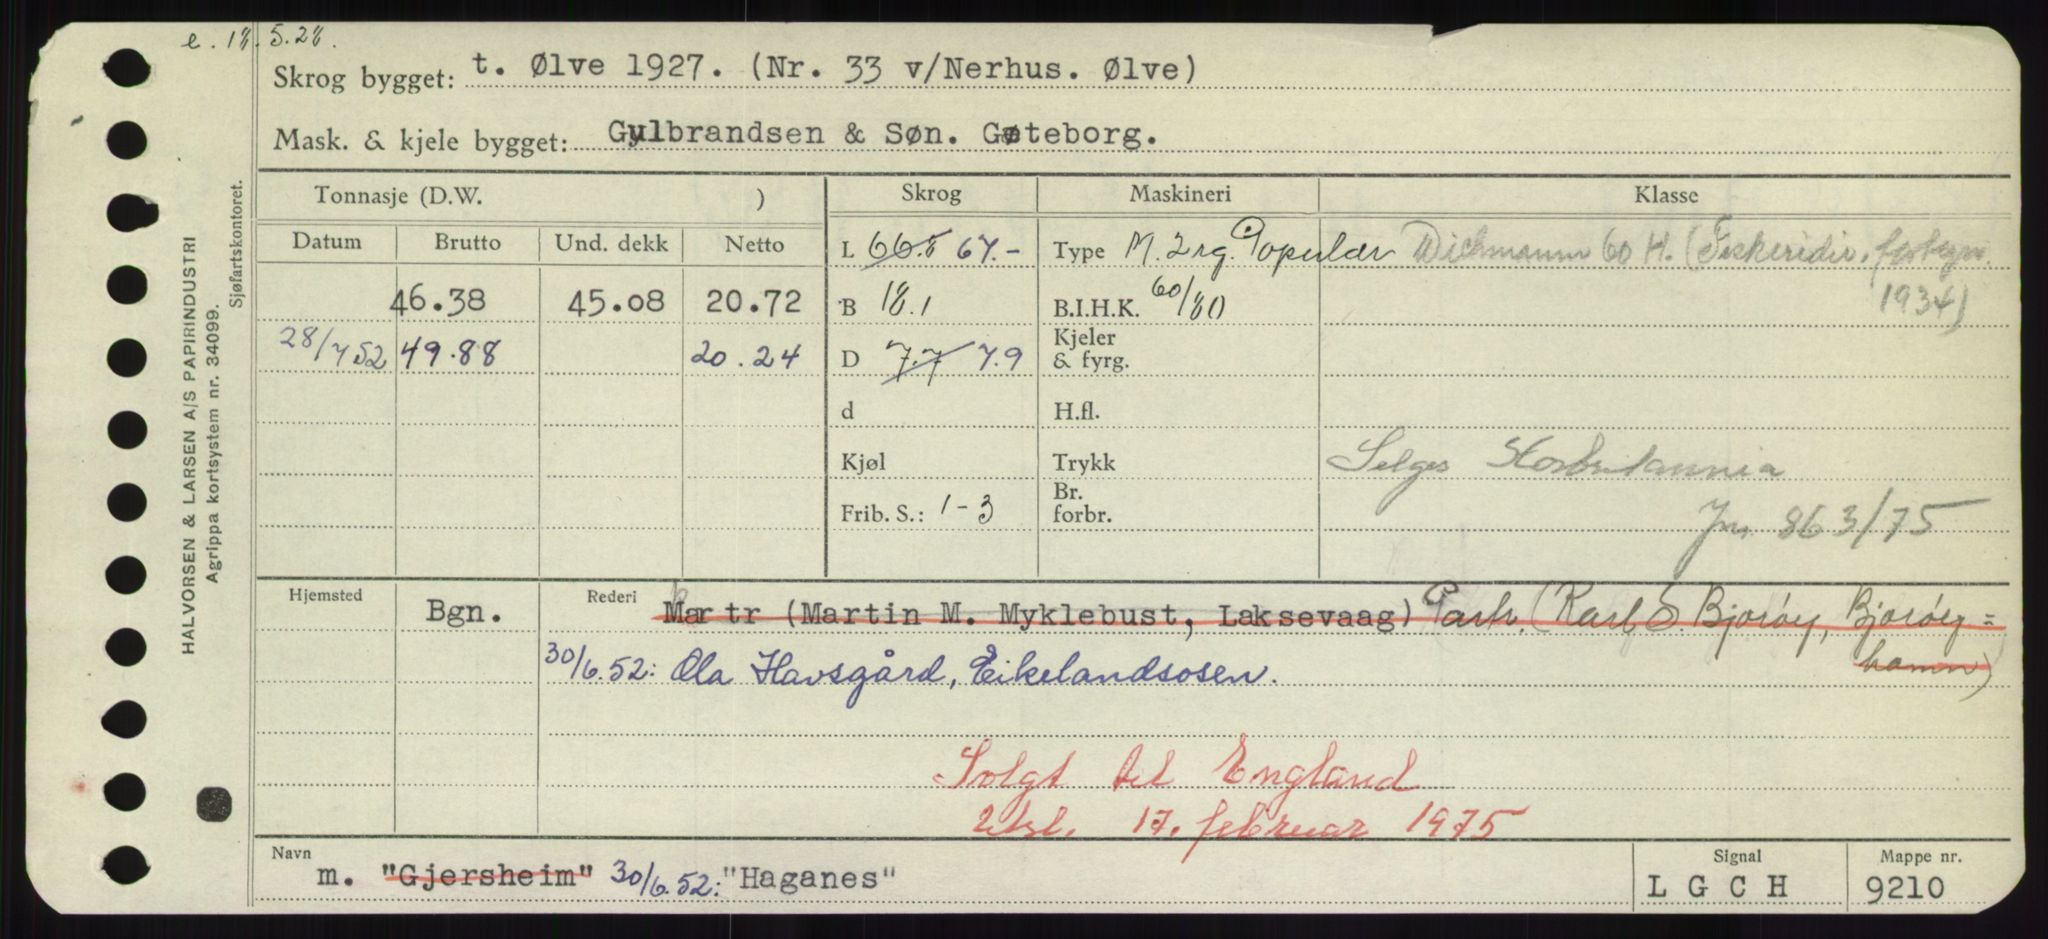 e. 18.5.28.
Skrog bygget: t. Ølve 1927. (Nr. 33 v/Nerhus. Ølve)
Mask. & kjele bygget: Gulbrandsen & Søn. Gøteborg.
Tonnasje (D.W. ) Skrog Maskineri Klasse
Datum Brutto Und. dekk Netto
L 66.8 67.- Type M. 2rg. Populær Wichmann 60 H. (Fiskeridir. fortegn.
46.38 45.08 20.72 B 18.1 B.I.H.K. 60/80 1934)
28/7 52 49.88 20.24 D 7.7 7.9 Kjeler & fyrg.
d H.fl.
Kjøl Trykk Selges Storbritannia
Frib. S.: 1-3 Br. forbr. Jnr. 863/75
Hjemsted Bgn. Rederi Martr (Martin M. Myklebust, Laksevaag) Partr. (Karl O. Bjorøy, Bjorøy=
hamn)
30/6.52: Ola Havsgård, Eikelandsosen.
Solgt til England
Utsl. 17. februar 1975
Navn m. "Gjersheim" 30/6.52: "Haganes"
Signal LGCH
Mappe nr. 9210
HALVORSEN & LARSEN A/S PAPIRINDUSTRI
Agrippa kortsystem nr. 34099.
Sjøfartskontoret.